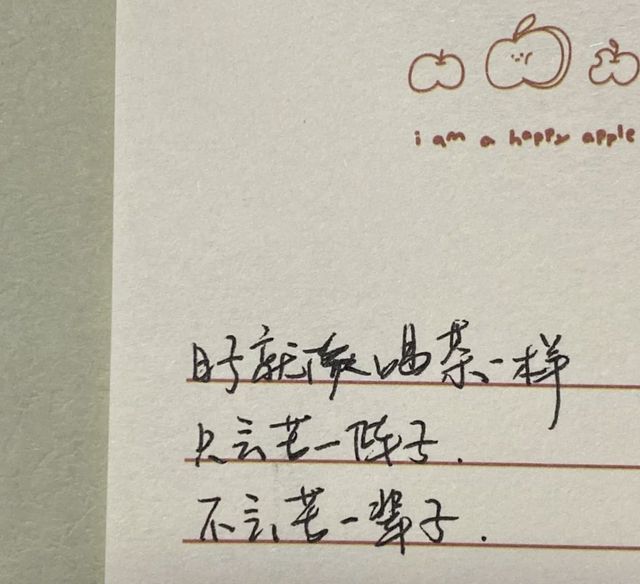 i am a happy apple
日子就像喝茶一样
只会苦一阵子.
不会苦一辈子.